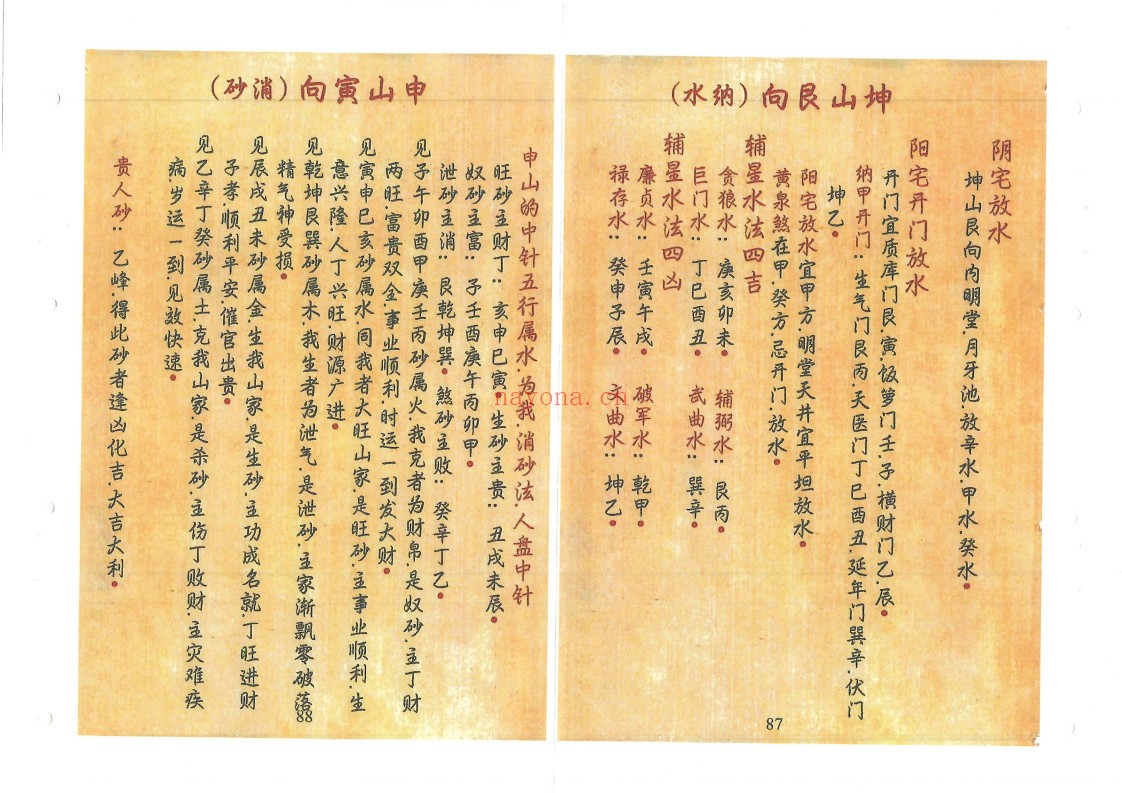 坤山艮向（纳水）
阴宅放水
坤山艮向内明堂.月牙池.放辛水.甲水.癸水.
阳宅开门放水
开门宜质库门艮.寅.饭箩门壬.子.横财门乙.辰.
纳甲开门：生气门艮丙.天医门丁巳酉丑.延年门巽辛.伏门
坤乙.
阳宅放水宜甲方.明堂天井宜平坦放水.
黄泉煞在甲.癸方.忌开门.放水.
辅星水法四吉
贪狼水：庚亥卯未. 辅弼水：艮丙.
巨门水：丁巳酉丑. 武曲水：巽辛.
辅星水法四凶
廉贞水：壬寅午戌. 破军水：乾甲.
禄存水：癸申子辰. 文曲水：坤乙.
87
申山寅向（消砂）
申山的中针五行属水.为我.消砂法.人盘中针
旺砂主财丁：亥申巳寅.生砂主贵：丑戌未辰.
奴砂主富：子壬酉庚午丙卯甲.
泄砂主消：艮乾坤巽.煞砂主败：癸辛丁乙.
见子午卯酉甲庚壬丙砂属火.我克者为财帛.是奴砂.主丁财
两旺.富贵双全.事业顺利.时运一到发大财.
见寅申巳亥砂属水.同我者大旺山家.是旺砂.主事业顺利.生
意兴隆.人丁兴旺.财源广进.
见乾坤艮巽砂属木.我生者为泄气.是泄砂.主家渐飘零破落
精气神受损.
见辰戌丑未砂属金.生我山家.是生砂.主功成名就.丁旺进财
子孝.顺利平安.催官出贵.
见乙辛丁癸砂属土.克我山家.是杀砂.主伤丁败财.主灾难疾
病.岁运一到.见效快速.
贵人砂：乙峰.得此砂者逢凶化吉.大吉大利.
88
nayona.cn